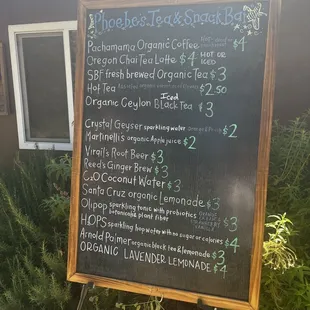 Phoebe's Tea & Snack Bar
Pachamama Organic Coffee $4
Oregon Chai Tea Latte $4 HOT or ICED
SBF fresh brewed Organic Tea $3
Hot Tea $2.50
Organic Ceylon Iced Black Tea $3
Crystal Geyser sparkling water $2
Martinelli's organic Apple juice $2
Virgil's Root Beer $3
Reed's Ginger Brew $3
C2O Coconut Water $3
Santa Cruz organic Lemonade $3
Olipop sparkling tonic with probiotics botanicals plant fiber $3
HOPS sparkling hop water with no sugar or calories $4
Arnold Palmer organic black tea & lemonade $3
ORGANIC LAVENDER LEMONADE $4